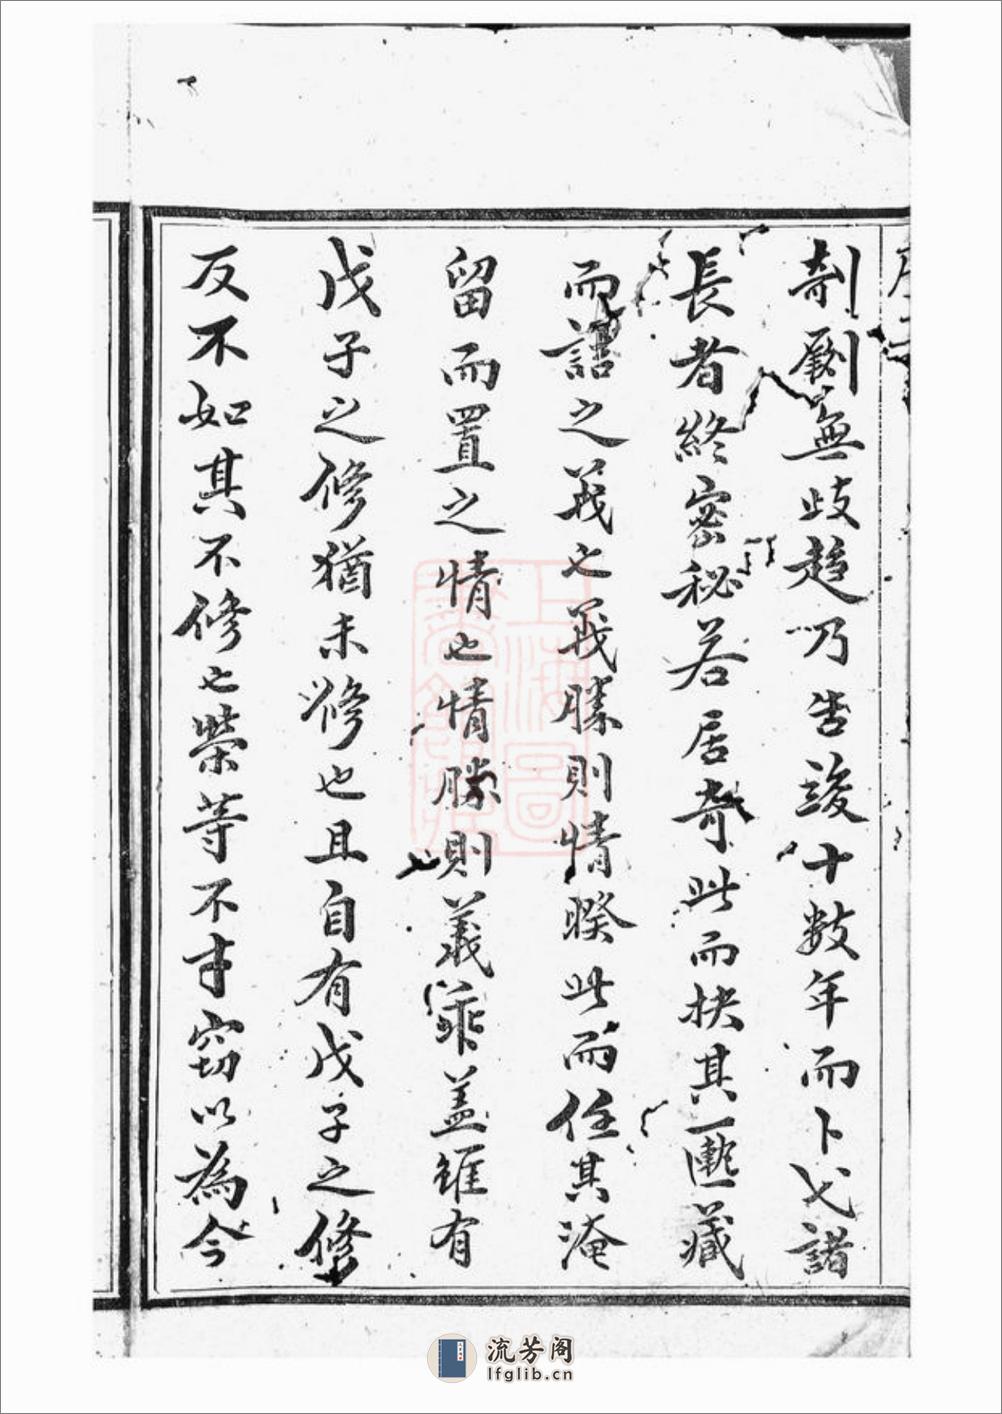 剞劂無歧趋乃告竣十數年而卜諸
長者終密秘若居奇此而抉其藏
而詰之義也義勝則情暌此而任其淹
留而置之情也情勝則義乖盖雖有
戊子之修猶未修也且自有戊子之修
反不如其不修也榮等不才窃以為今
上海圖
書館藏
流芳阁
lfglib.cn